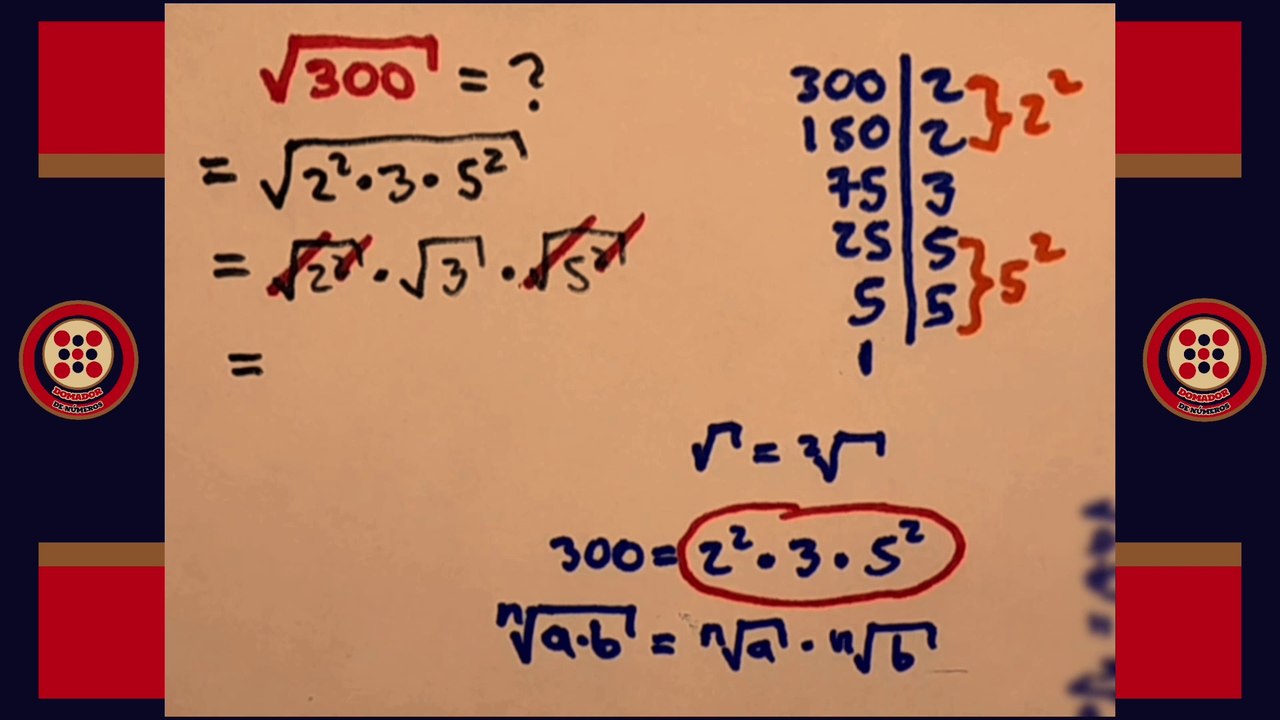 √300 = ?
= √2²·3·5²
= √2²·√3·√5²
=
300 | 2 } 2²
150 | 2
75 | 3
25 | 5 } 5²
5 | 5
1
√ = ²√
300 = 2²·3·5²
ⁿ√a·b = ⁿ√a·ⁿ√b
DOMADOR
DE NÚMEROS
DOMADOR
DE NÚMEROS